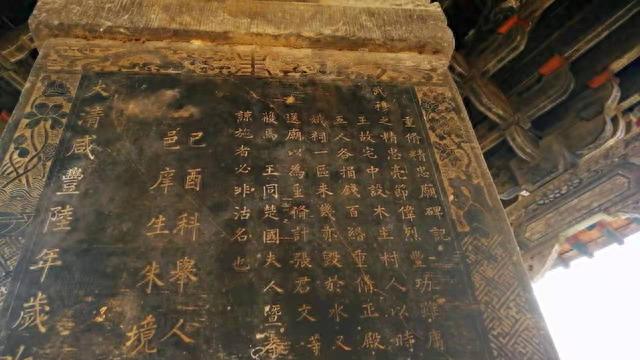 重脩精忠廟碑記
武穆之精忠亮節偉烈豐功雖庸
王故宅中設木主村人以時
五人各捐錢百緡重脩正殿
娥祠一區未幾亦毀於水又
送廟以為重脩計張君文等
馬王同楚國夫人暨
諒施者必非沽名也
己酉科舉人
邑庠生朱境
大清咸豐陸年歲次